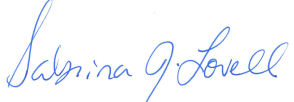 Sabrina J. Lovell